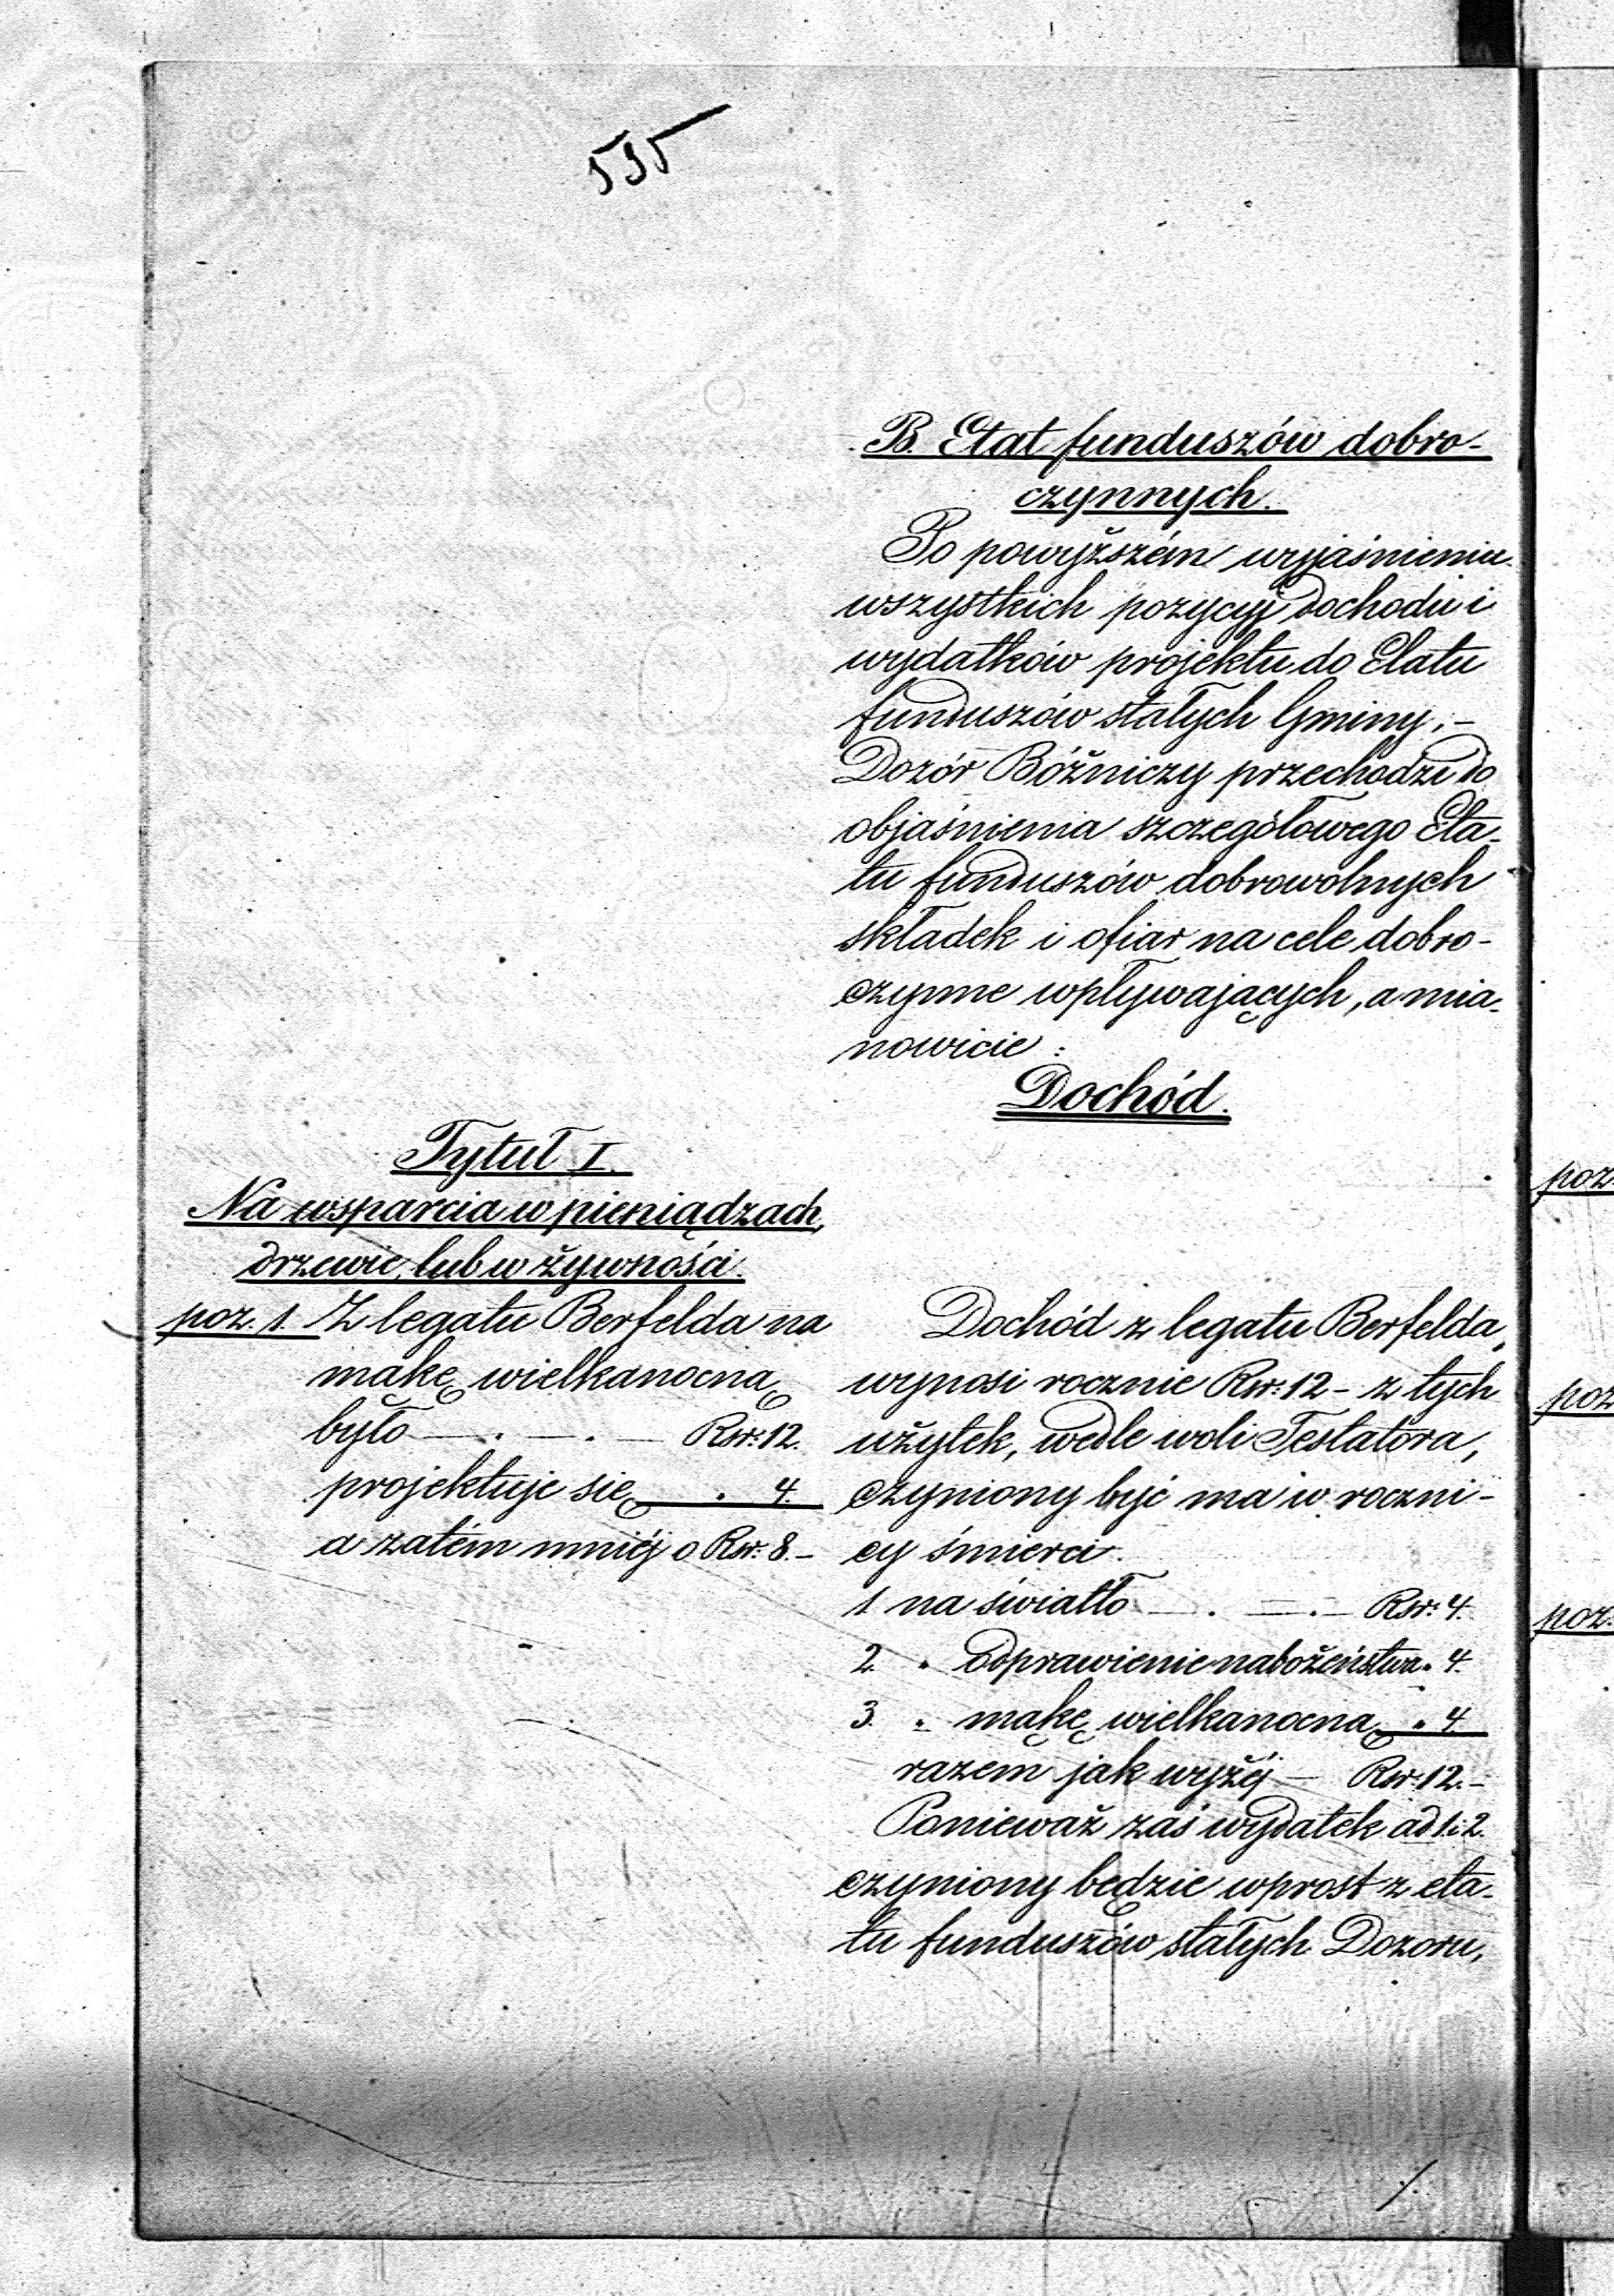 535
B. Etat funduszów dobro-
czynnych.
Po powyższém wyjaśnieniu
wszystkich pozycyj dochodu i
wydatków projektu do Etatu
funduszów stałych Gminy, -
Dozór Bóżniczy przechodzi do
objaśnienia szczegółowego Eta-
tu funduszów dobrowolnych
składek i ofiar na cele dobro-
czynne wpływających, a mia-
nowicie :
Dochód.
Tytuł I.
Na wsparcia w pieniądzach,
drzewie, lub w żywności.
poz. 1. Z legatu Berfelda na
mąkę wielkanocną
było — . — . — Rsr: 12.
projektuje się . 4.
a zatém mniéj o Rsr: 8. -
Dochód z legatu Berfelda,
wynosi rocznie Rsr: 12 - z tych
użytek, wedle woli Testatora,
czyniony być ma w roczni-
cy śmierci.
1 na światło — . — . — Rsr: 4.
2. " odprawienie nabożeństwa " 4.
3. " mąkę wielkanocną " 4.
razem jak wyżéj — Rsr: 12. -
Ponieważ zaś wydatek ad 1. i 2.
czyniony będzie wprost z eta-
tu funduszów stałych Dozoru,
poz.
poz
poz.